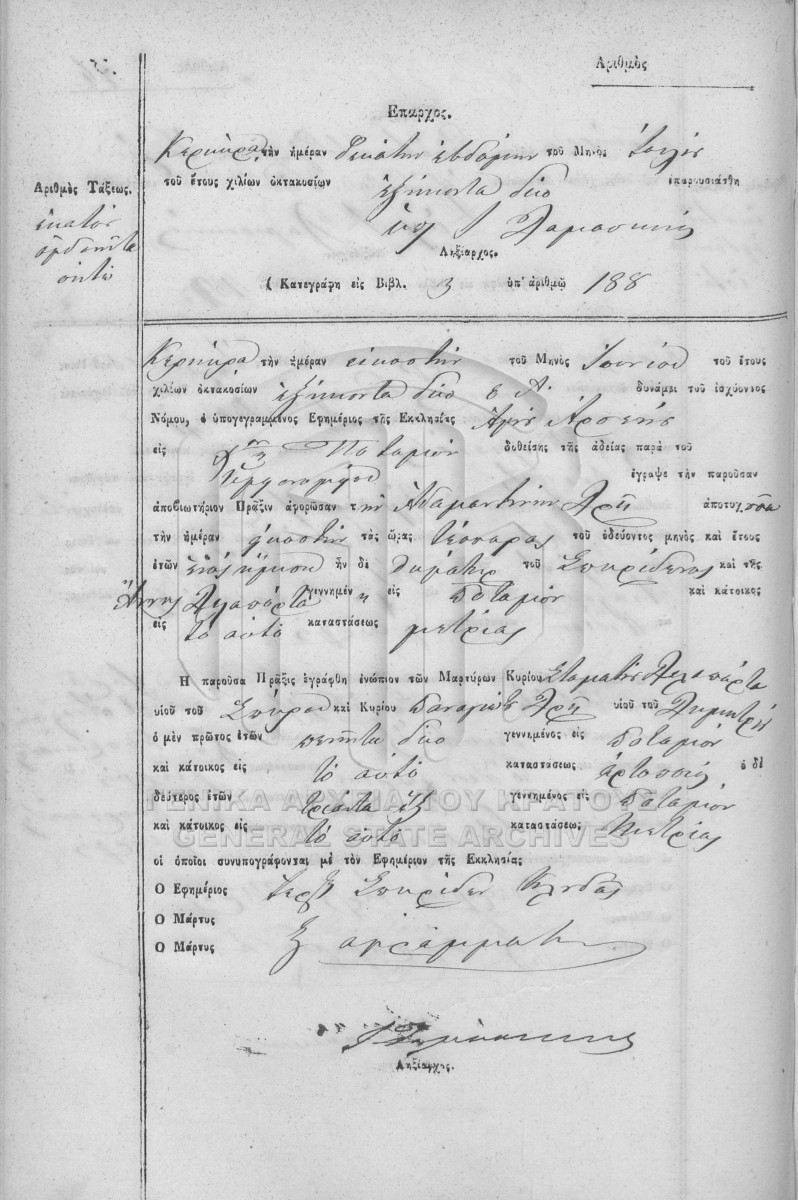 Αριθμὸς
Επαρχος.
Κερκύρα τὴν ἡμέραν δεκάτην ἑβδόμην τοῦ Μηνὸς
τοῦ ἔτους χιλίων ὀκτακοσίων ἑξήκοντα δύο ἐπαρουσιάσθη
Δαμασκηνὸς
Ληξίαρχος.
( Κατεγράφη εἰς Βιβλ. 3 ὑπ' ἀριθμῷ 188
Αριθμὸς Τάξεως.
ἑκατὸν
ὀγδοῆντα
ὀκτὼ
Κερκύρα τὴν ἡμέραν εἰκοστὴν τοῦ Μηνὸς Ἰουνίου τοῦ ἔτους
χιλίων ὀκτακοσίων ἑξήκοντα δύο δυνάμει τοῦ ἰσχύοντος
Νόμου, ὁ ὑπογεγραμμένος Εφημέριος τῆς Εκκλησίας Ἁγίου Ἀρσενίου
εἰς Ποταμὸν δοθείσης τῆς ἀδείας παρὰ τοῦ
ἔγραψε τὴν παροῦσαν
ἀποβιωτήριον Πρᾶξιν ἀφορῶσαν τὴν Ἀδαμαντίνην Ἀρῆ ἀποτυχοῦσα
τὴν ἡμέραν εἰκοστὴν τὰς ὥρας τέσσαρας τοῦ ὁδεύοντος μηνὸς καὶ ἔτους
ἐτῶν ἑνὸς ἥμισυ ἦν δὲ θυγάτηρ τοῦ Σπυρίδωνος καὶ τῆς
Ἄννης γεννημένη εἰς Ποταμὸν καὶ κάτοικος
εἰς τὸ αὐτὸ καταστάσεως μετρίας
Η παροῦσα Πρᾶξις ἐγράφθη ἐνώπιον τῶν Μαρτύρων Κυρίου Σταμάτης
υἱοῦ τοῦ Σπύρου καὶ Κυρίου Παναγιώτη Ἀρῆ υἱοῦ τοῦ Δημητρίου
ὁ μὲν πρῶτος ἐτῶν πενῆντα δύο γεννημένος εἰς Ποταμὸν
καὶ κάτοικος εἰς τὸ αὐτὸ καταστάσεως ἀρτοποιὸς ὁ δὲ
δεύτερος ἐτῶν τριάντα ἓξ γεννημένος εἰς Ποταμὸν
καὶ κάτοικος εἰς τὸ αὐτὸ καταστάσεως μετρίας
οἱ ὁποῖοι συνυπογράφονται μὲ τὸν Εφημέριον τῆς Εκκλησίας
Ο Εφημέριος Σπυρίδων
Ο Μάρτυς
Ο Μάρτυς ἀγράμματοι
Ληξίαρχος.
ΓΕΝΙΚΑ ΑΡΧΕΙΑ ΤΟΥ ΚΡΑΤΟΥΣ
GENERAL STATE ARCHIVES